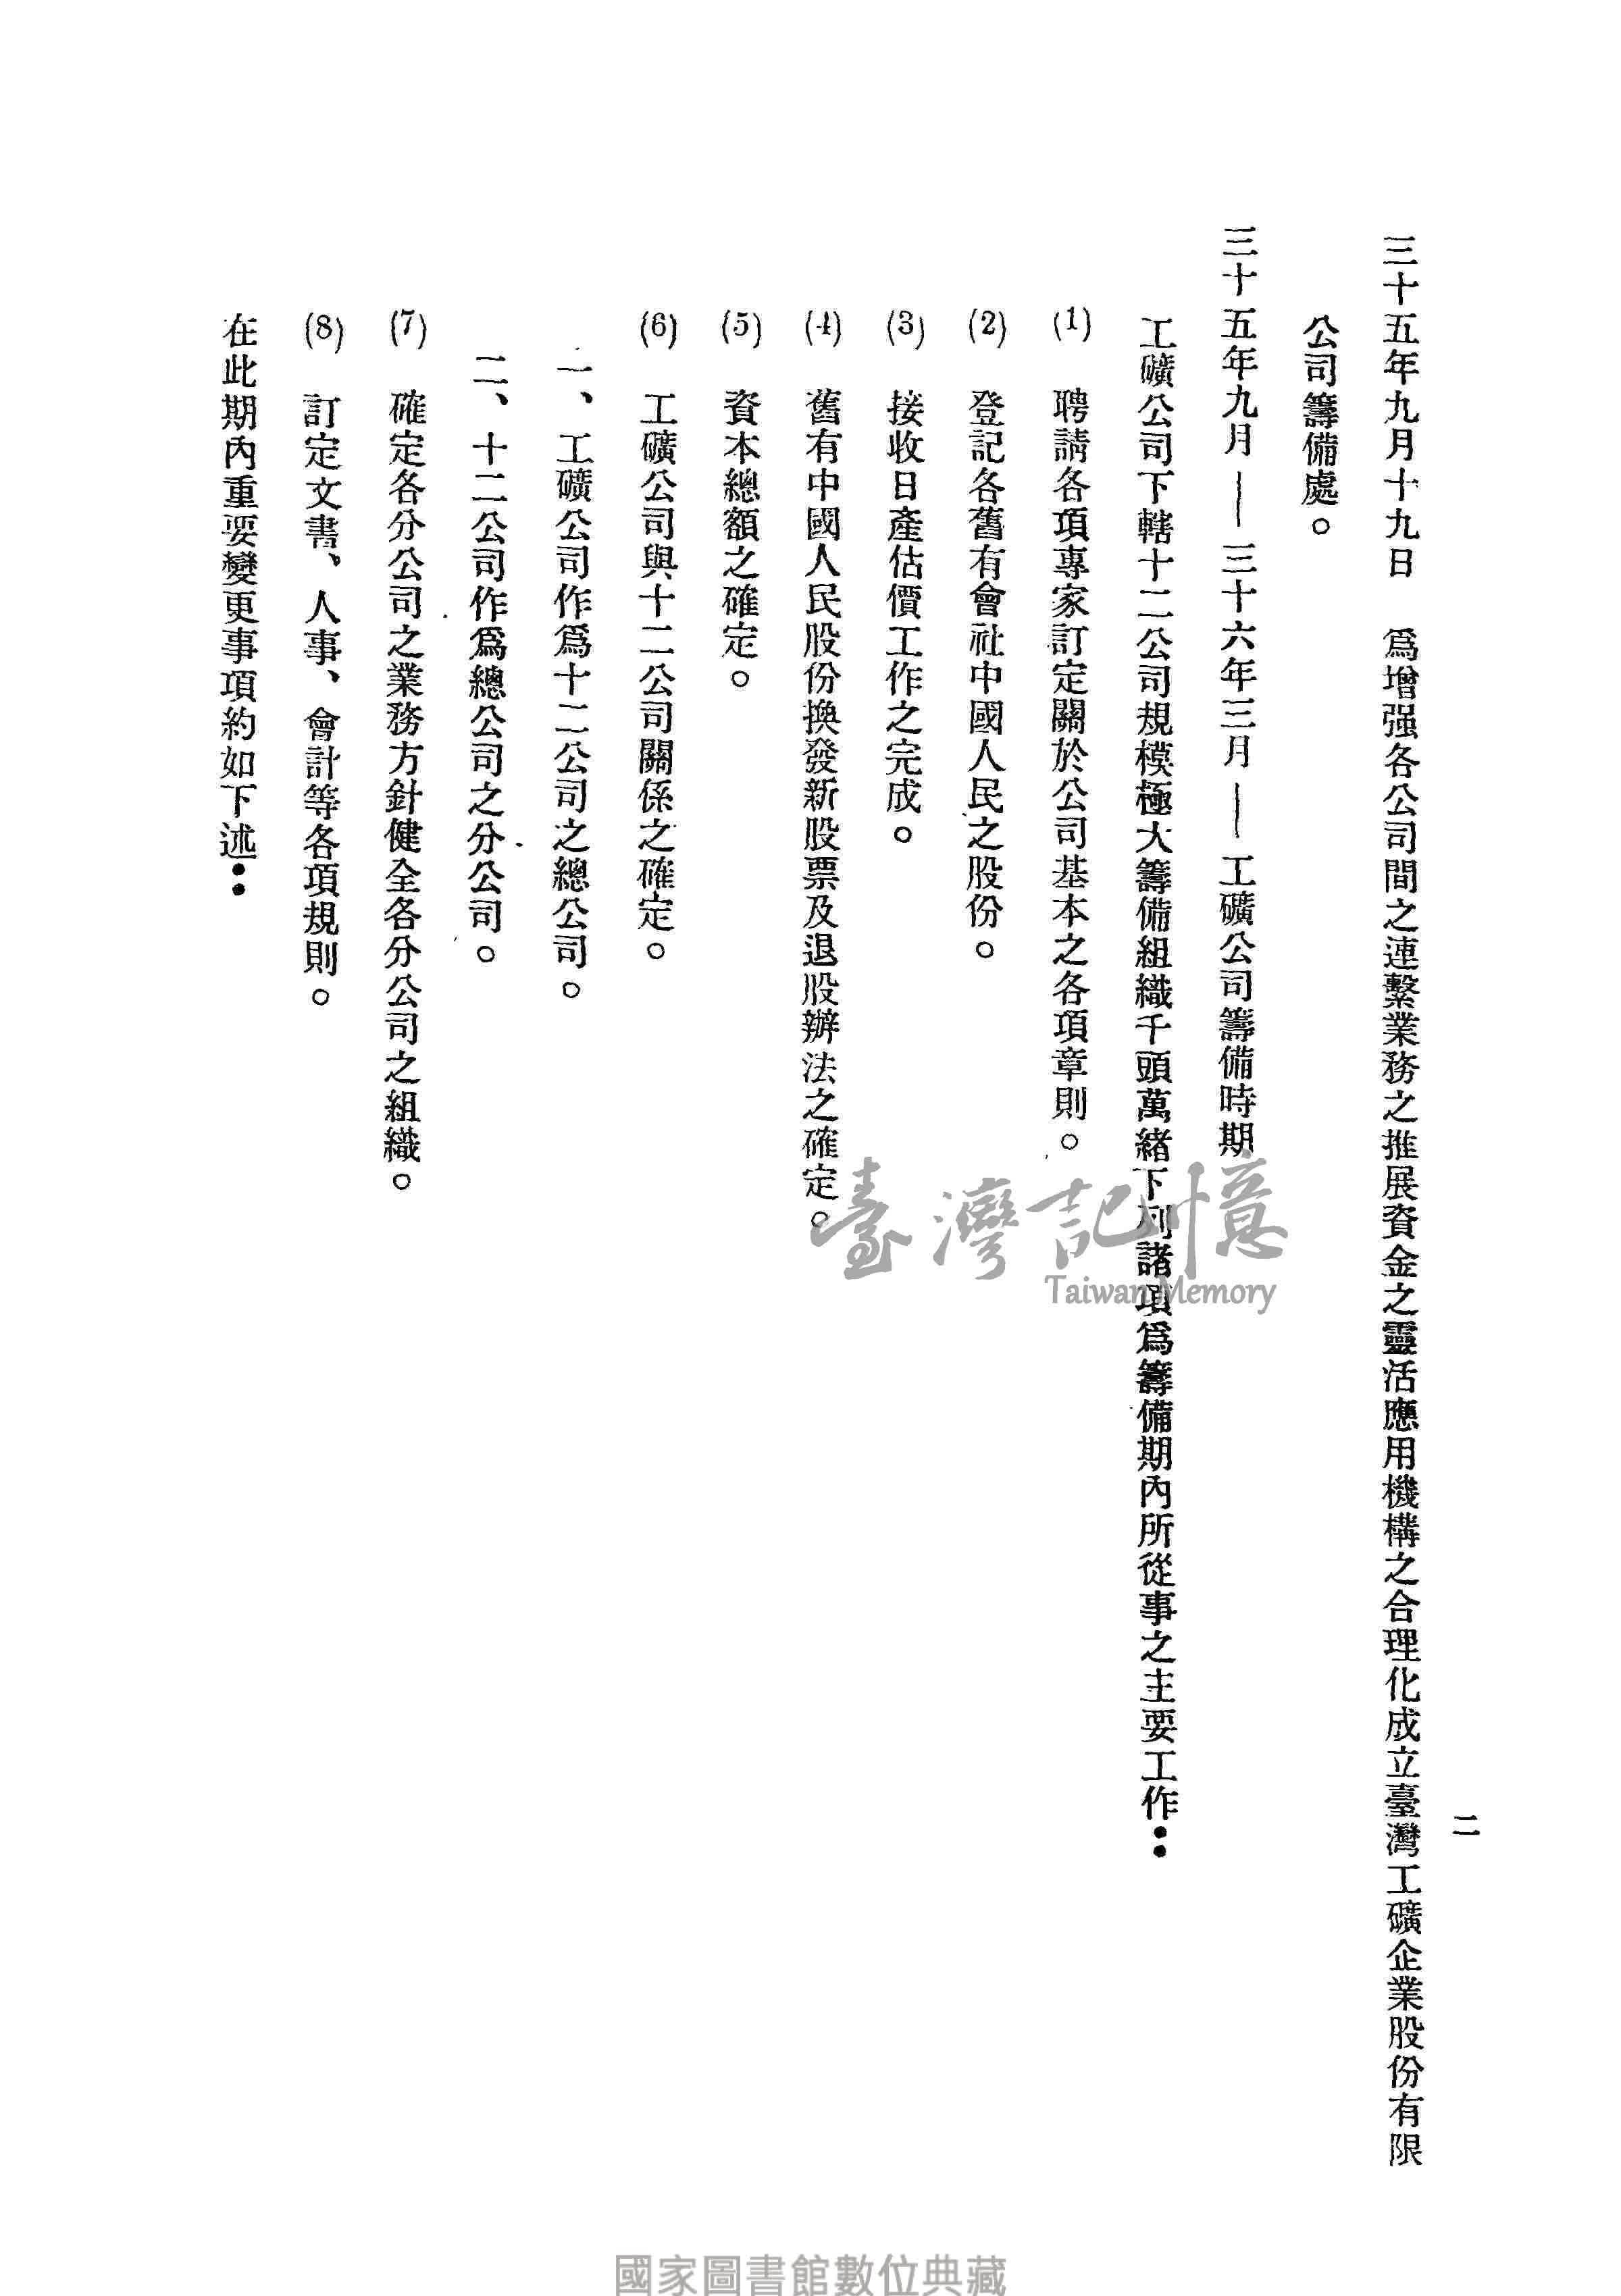 二
三十五年九月十九日　爲增强各公司間之連繫業務之推展資金之靈活應用機構之合理化成立臺灣工礦企業股份有限
公司籌備處。
三十五年九月——三十六年三月——工礦公司籌備時期
工礦公司下轄十二公司規模極大籌備組織千頭萬緒下列諸項爲籌備期內所從事之主要工作：
(1)　聘請各項專家訂定關於公司基本之各項章則。
(2)　登記各舊有會社中國人民之股份。
(3)　接收日產估價工作之完成。
(4)　舊有中國人民股份換發新股票及退股辦法之確定。
(5)　資本總額之確定。
(6)　工礦公司與十二公司關係之確定。
一、工礦公司作爲十二公司之總公司。
二、十二公司作爲總公司之分公司。
(7)　確定各分公司之業務方針健全各分公司之組織。
(8)　訂定文書、人事、會計等各項規則。
在此期內重要變更事項約如下述：
臺灣記憶
Taiwan Memory
國家圖書館數位典藏